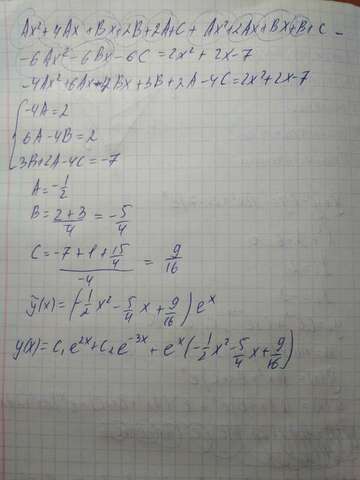 Ax²+4Ax+Bx+2B+2A+C+Ax²+2Ax+Bx+B+C-
-6Ax²-6Bx-6C=2x²+2x-7
-4Ax²+6Ax-4Bx+3B+2A-4C=2x²+2x-7
{-4A=2
6A-4B=2
3B+2A-4C=-7
A=-1/2
B=(2+3)/4=-5/4
C=(-7+1+15/4)/-4=9/16
ỹ(x)=(-1/2x²-5/4x+9/16)eˣ
y(x)=C₁e²ˣ+C₂e⁻³ˣ+eˣ(-1/2x²-5/4x+9/16)